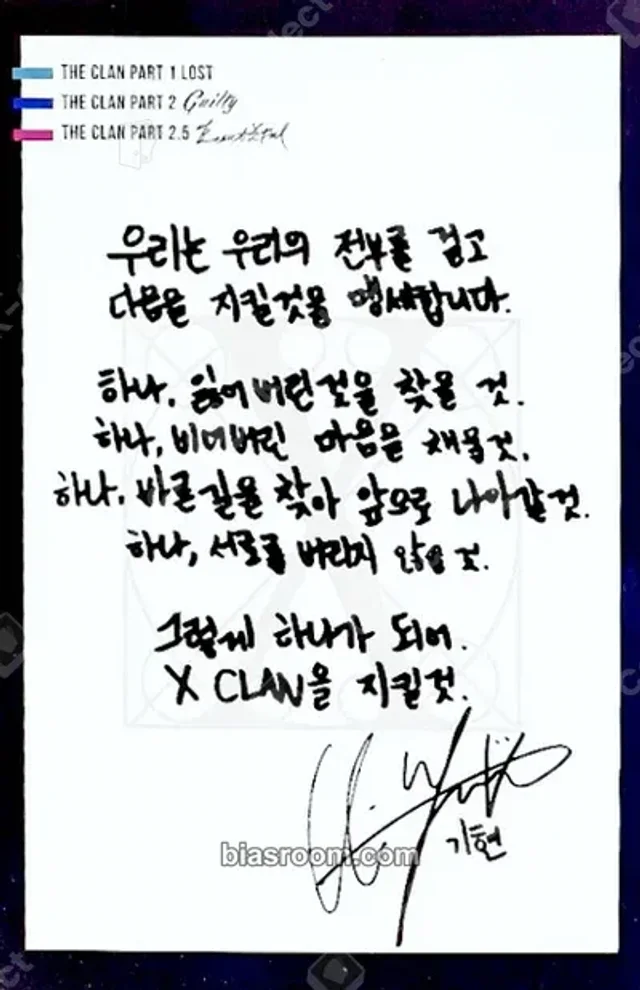 THE CLAN PART 1 LOST
THE CLAN PART 2 Guilty
THE CLAN PART 2.5 Beautiful
우리는 우리의 전부를 걸고
다음을 지킬것을 맹세합니다.
하나. 잃어버린것을 찾을 것.
하나, 비어버린 마음을 채울것.
하나. 바른길을 찾아 앞으로 나아갈것.
하나, 서로를 버리지 않을 것.
그렇게 하나가 되어.
X CLAN을 지킬것.
기현
biasroom.com